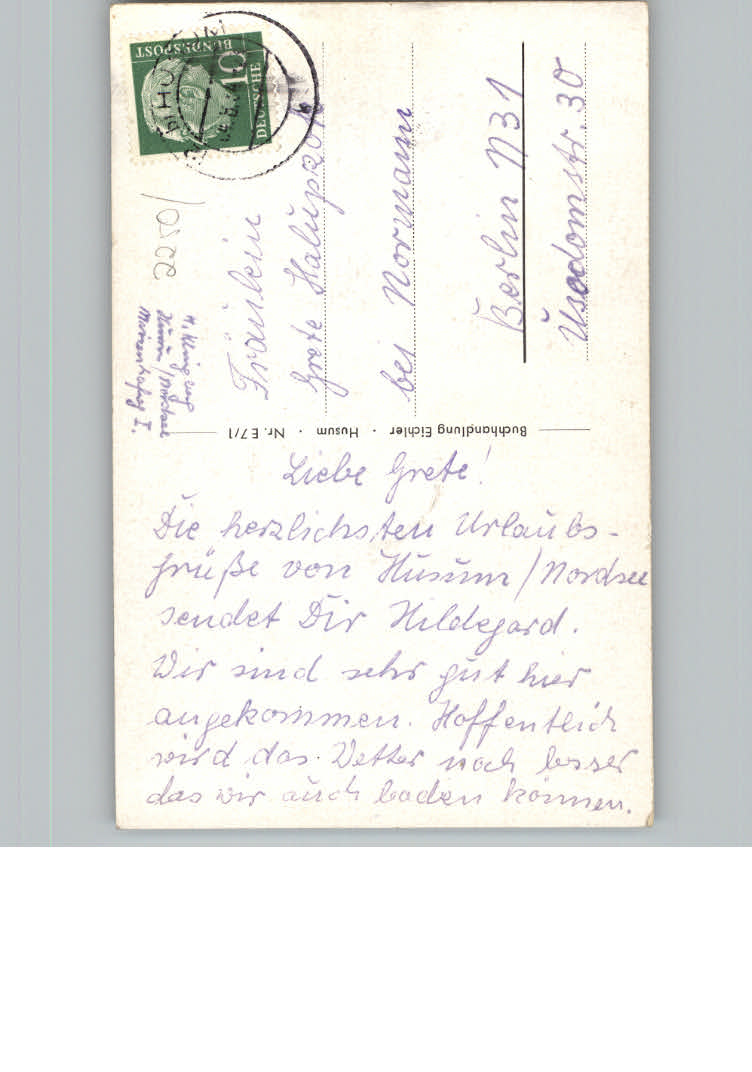 DEUTSCHE
BUNDESPOST
10
HUSUM
2250/
Husum/Nordsee
Fräulein
Grete Halupzok
bei Normann
Berlin N31
Usedomstr. 30
Buchhandlung Eichler · Husum · Nr. E 7/1
Liebe Grete!
Die herzlichsten Urlaubs-
grüße von Husum/Nordsee
sendet Dir Hildegard.
Wir sind sehr gut hier
angekommen. Hoffentlich
wird das Wetter noch besser
das wir auch baden können.